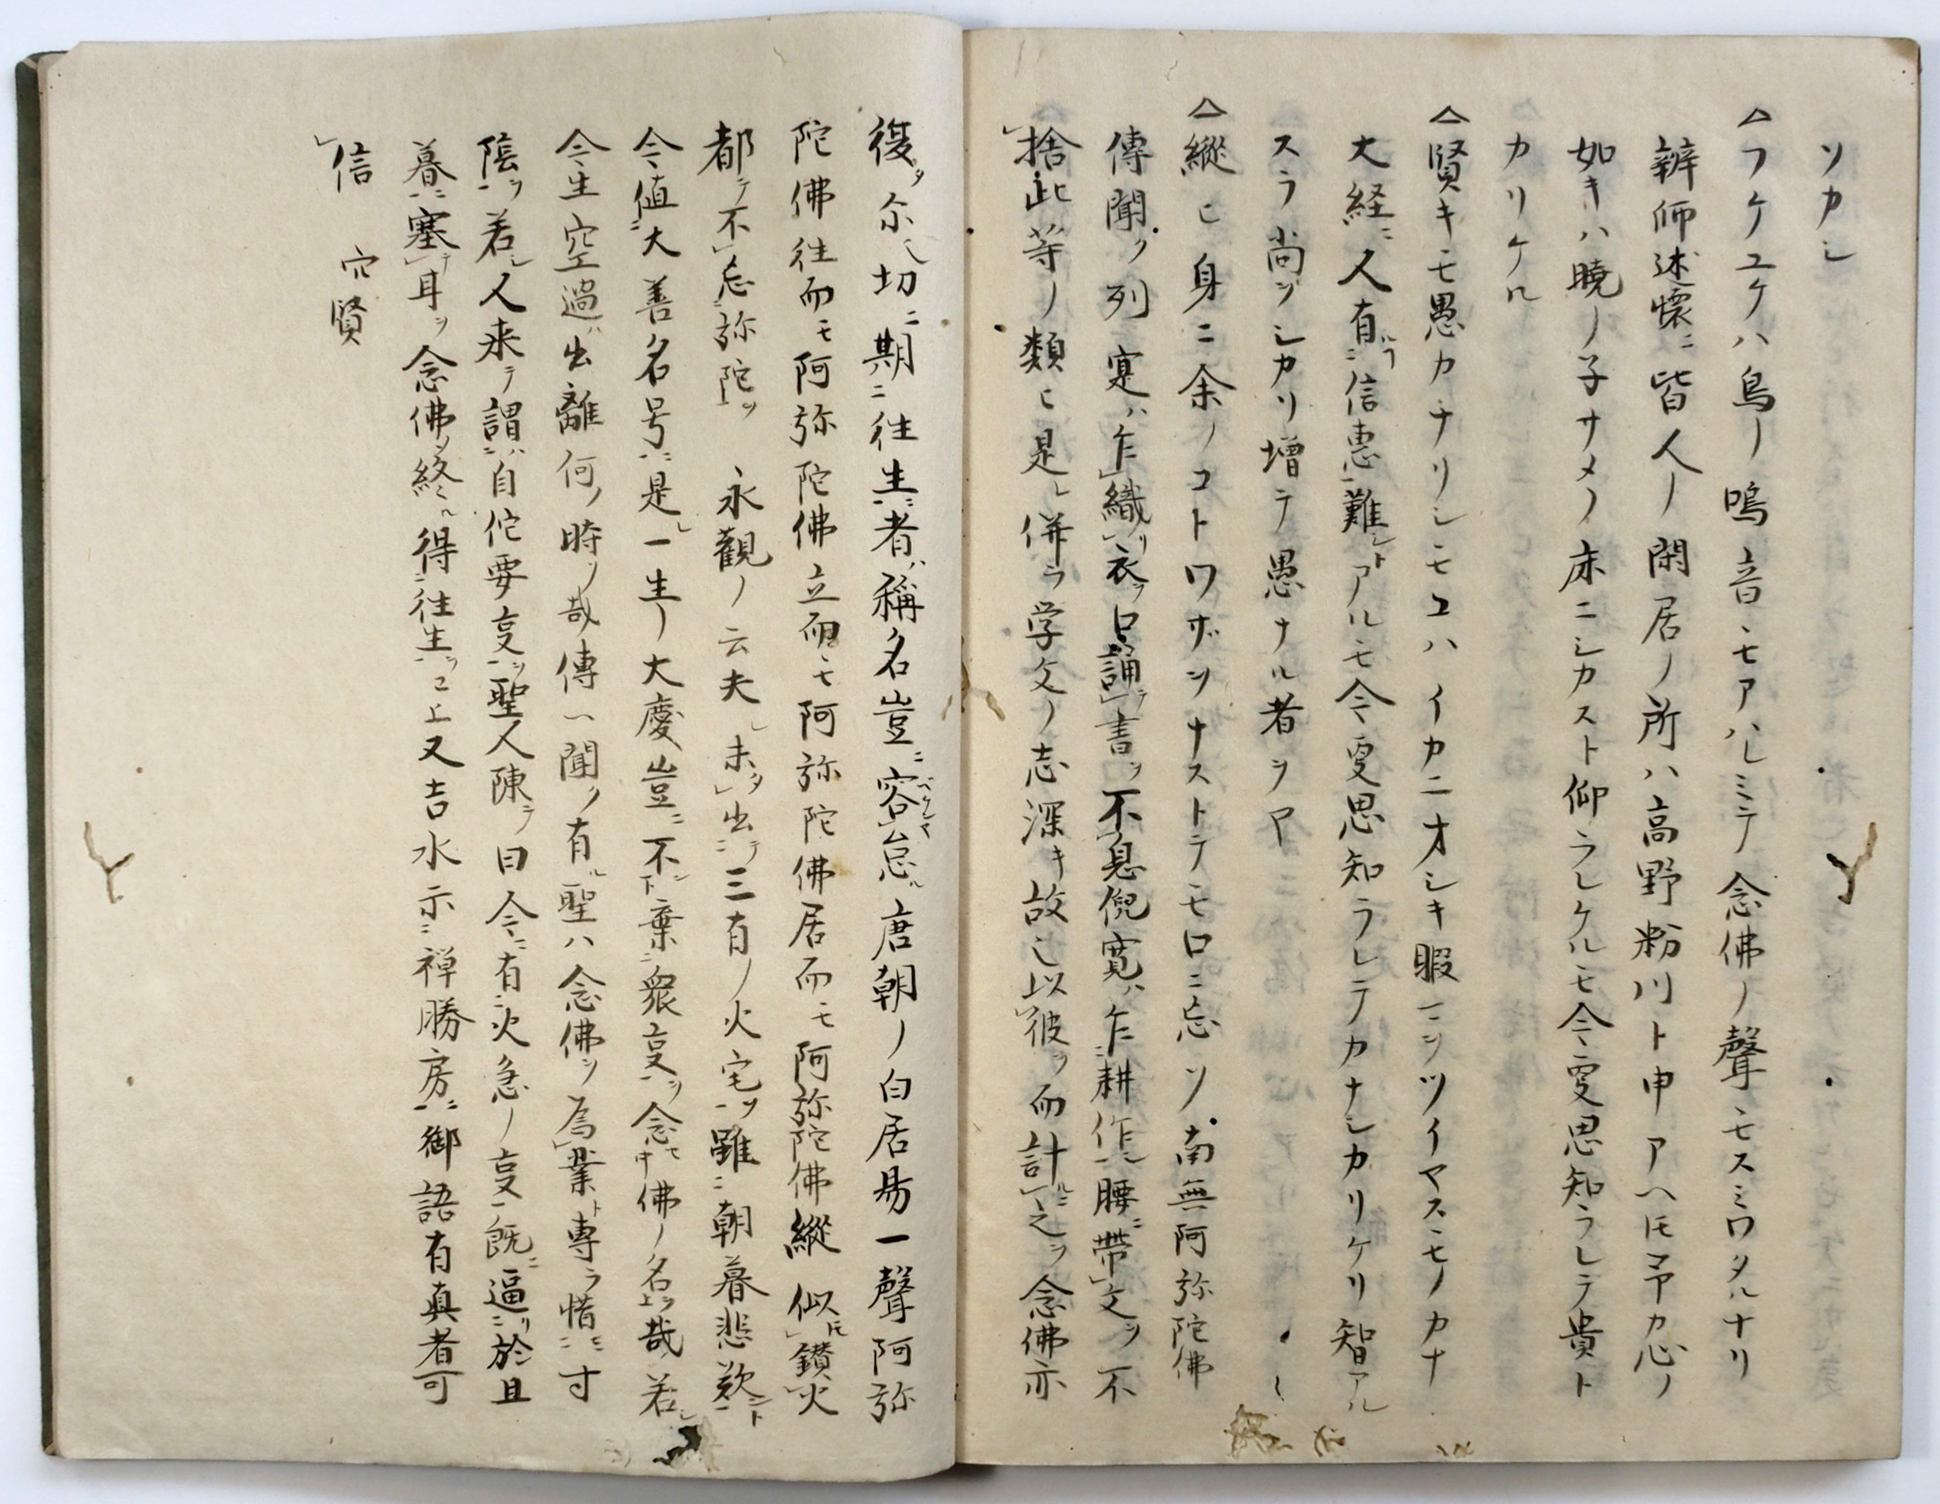 ソカシ
△フケユケハ鳥ノ鳴音モアハレミテ念佛ノ聲モスミワタルナリ
辨師述懐ニ皆人ノ閑居ノ所ハ高野粉川ト申アヘトモ予カ心ノ
如キハ曉ノ子サメノ床ニシカスト仰ラレケルモ今更思知ラレテ貴ト
カリケル
△賢キモ愚カナリシモユハイカニオシキ暇マニツイマスモノカナ
大経ニ人有ルコト信恵難シトアルモ今更思知ラレテカナシカリケリ智アル
スラ尚ヲシカリ増テ愚ナル者ヲヤ
△縱ヒ身ニ余ノコトワザヲナストテモ口ニ忘ソ南無阿弥陀佛
傳聞ク列寔ハ乍織リ衣ヲ口誦テ書ヲ不息倪寛ハ乍耕作腰ニ帯文ヲ不
捨此等ノ類ヒ是レ併ラ学文ノ志深キ故也以彼ヲ而計ルニ之ヲ念佛亦
復タ尓也切ニ期ニ往生ニ者ハ稱名豈ニ容ベケンヤ怠ル唐朝ノ白居易一聲阿弥
陀佛往而モ阿弥陀佛立而モ阿弥陀佛居而モ阿弥陀佛縱似トモ鑚火
都テ不忘弥陀ヲ 永觀ノ云夫レ未タ出テ三有ノ火宅ヲ雖ニ朝暮悲歎スト
今値大善名号ニ是レ一生ノ大慶豈ニ不下棄ニ衆夏ヲ念セ中佛ノ名上ヲ哉若シ
今生空過ハ出離何ノ時ソ哉傳ヘ聞ク有ル聖ハ念佛ヲ為業ト專ラ惜ニ寸
陰ヲ若シ人来テ謂ハ自佗要夏ヲ聖人陳テ曰今ニ有火急ノ夏既ニ逼リ於旦
暮ニ塞テ耳ヲ念佛メ終ニ得往生ヲ已上又吉水示ニ禅勝房ニ御語有真者可
信 穴賢